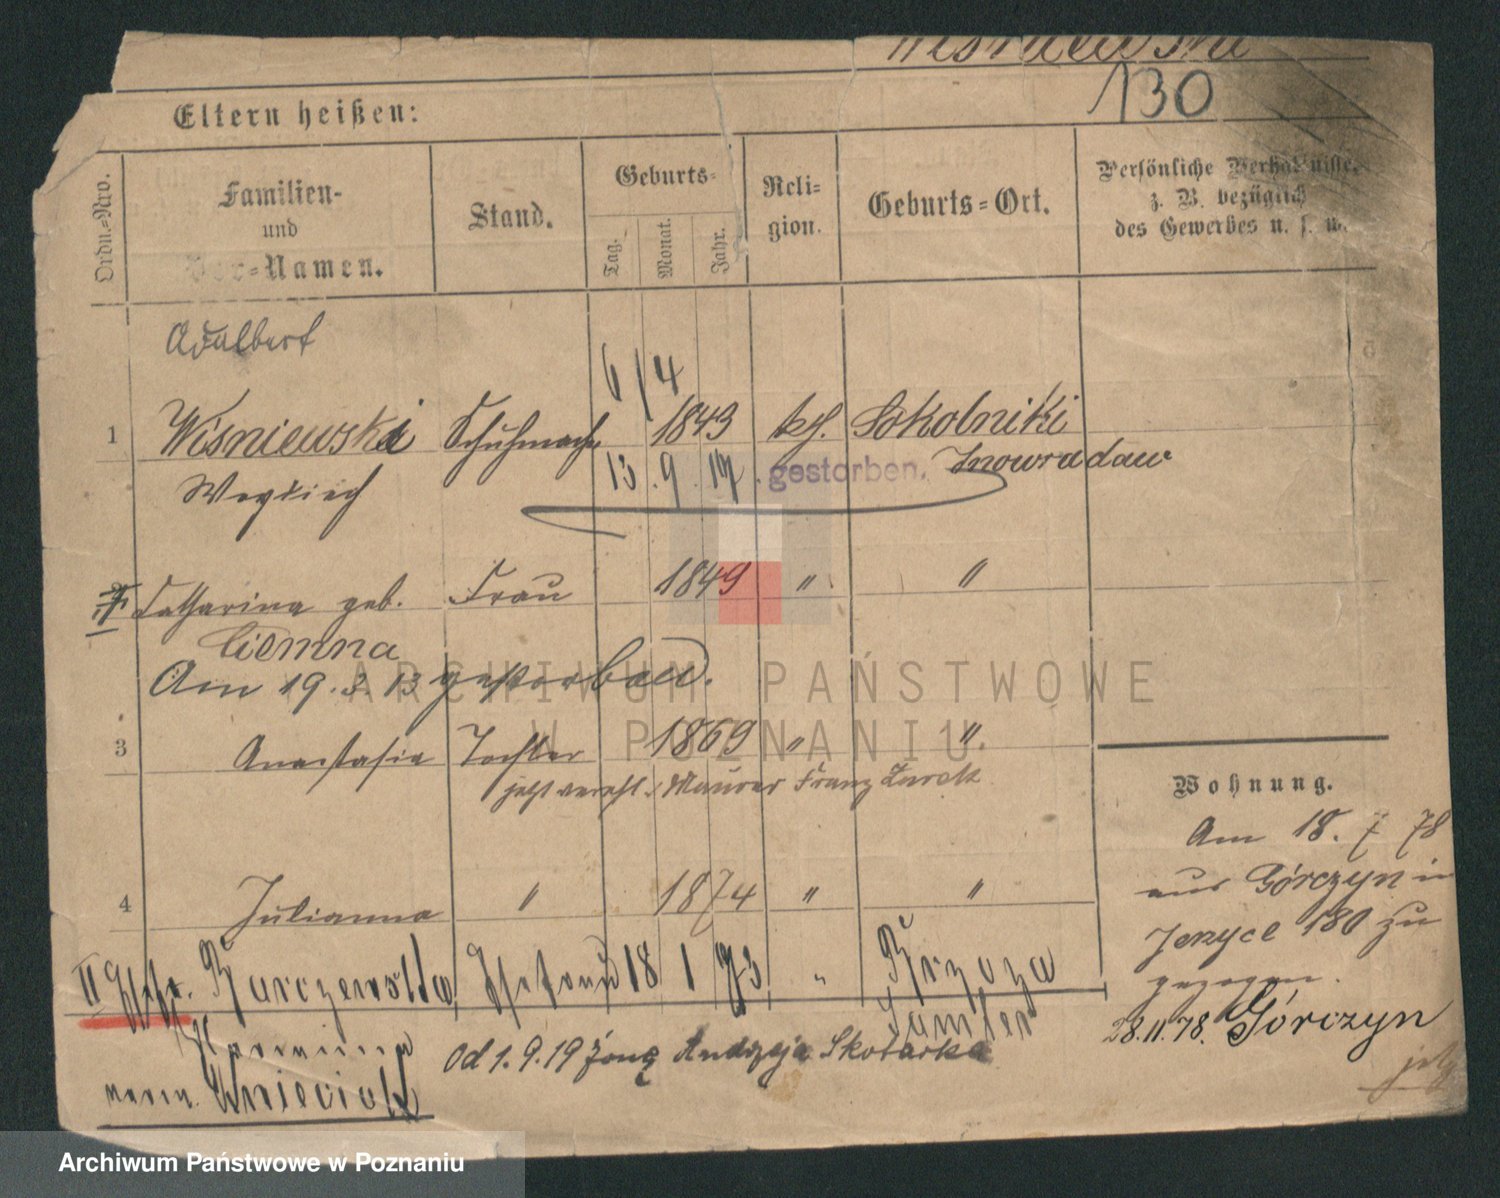 Wisniewski
130
Eltern heißen:
Ordn.-Nro.
Familien-
und
Vor-Namen.
Stand.
Geburts-
Tag.
Monat.
Jahr.
Reli-
gion.
Geburts-Ort.
Persönliche Verhältnisse,
z. B. bezüglich
des Gewerbes u. s. w.
Adalbert
6/4
1 Wiśniewski Schuhmacher 1843 kth. Sokolniki
13.9.17. gestorben. Inowradaw
Catharina geb. Frau 1849 " "
Ciemna
Am 19.3.13 gestorben.
3 Anastasia Tochter 1869 " "
jetzt vereh. Maurer Franz
4 Julianna " 1874 " "
II 18 1 73 "
Od 1.9.19 żonę Andrzeja Skotarka
Wohnung.
Am 18.7 78
aus Górczyn in
Jerzyce 180 zu
gezogen.
28.11.78. Górczyn
ARCHIWUM PAŃSTWOWE
W POZNANIU
Archiwum Państwowe w Poznaniu